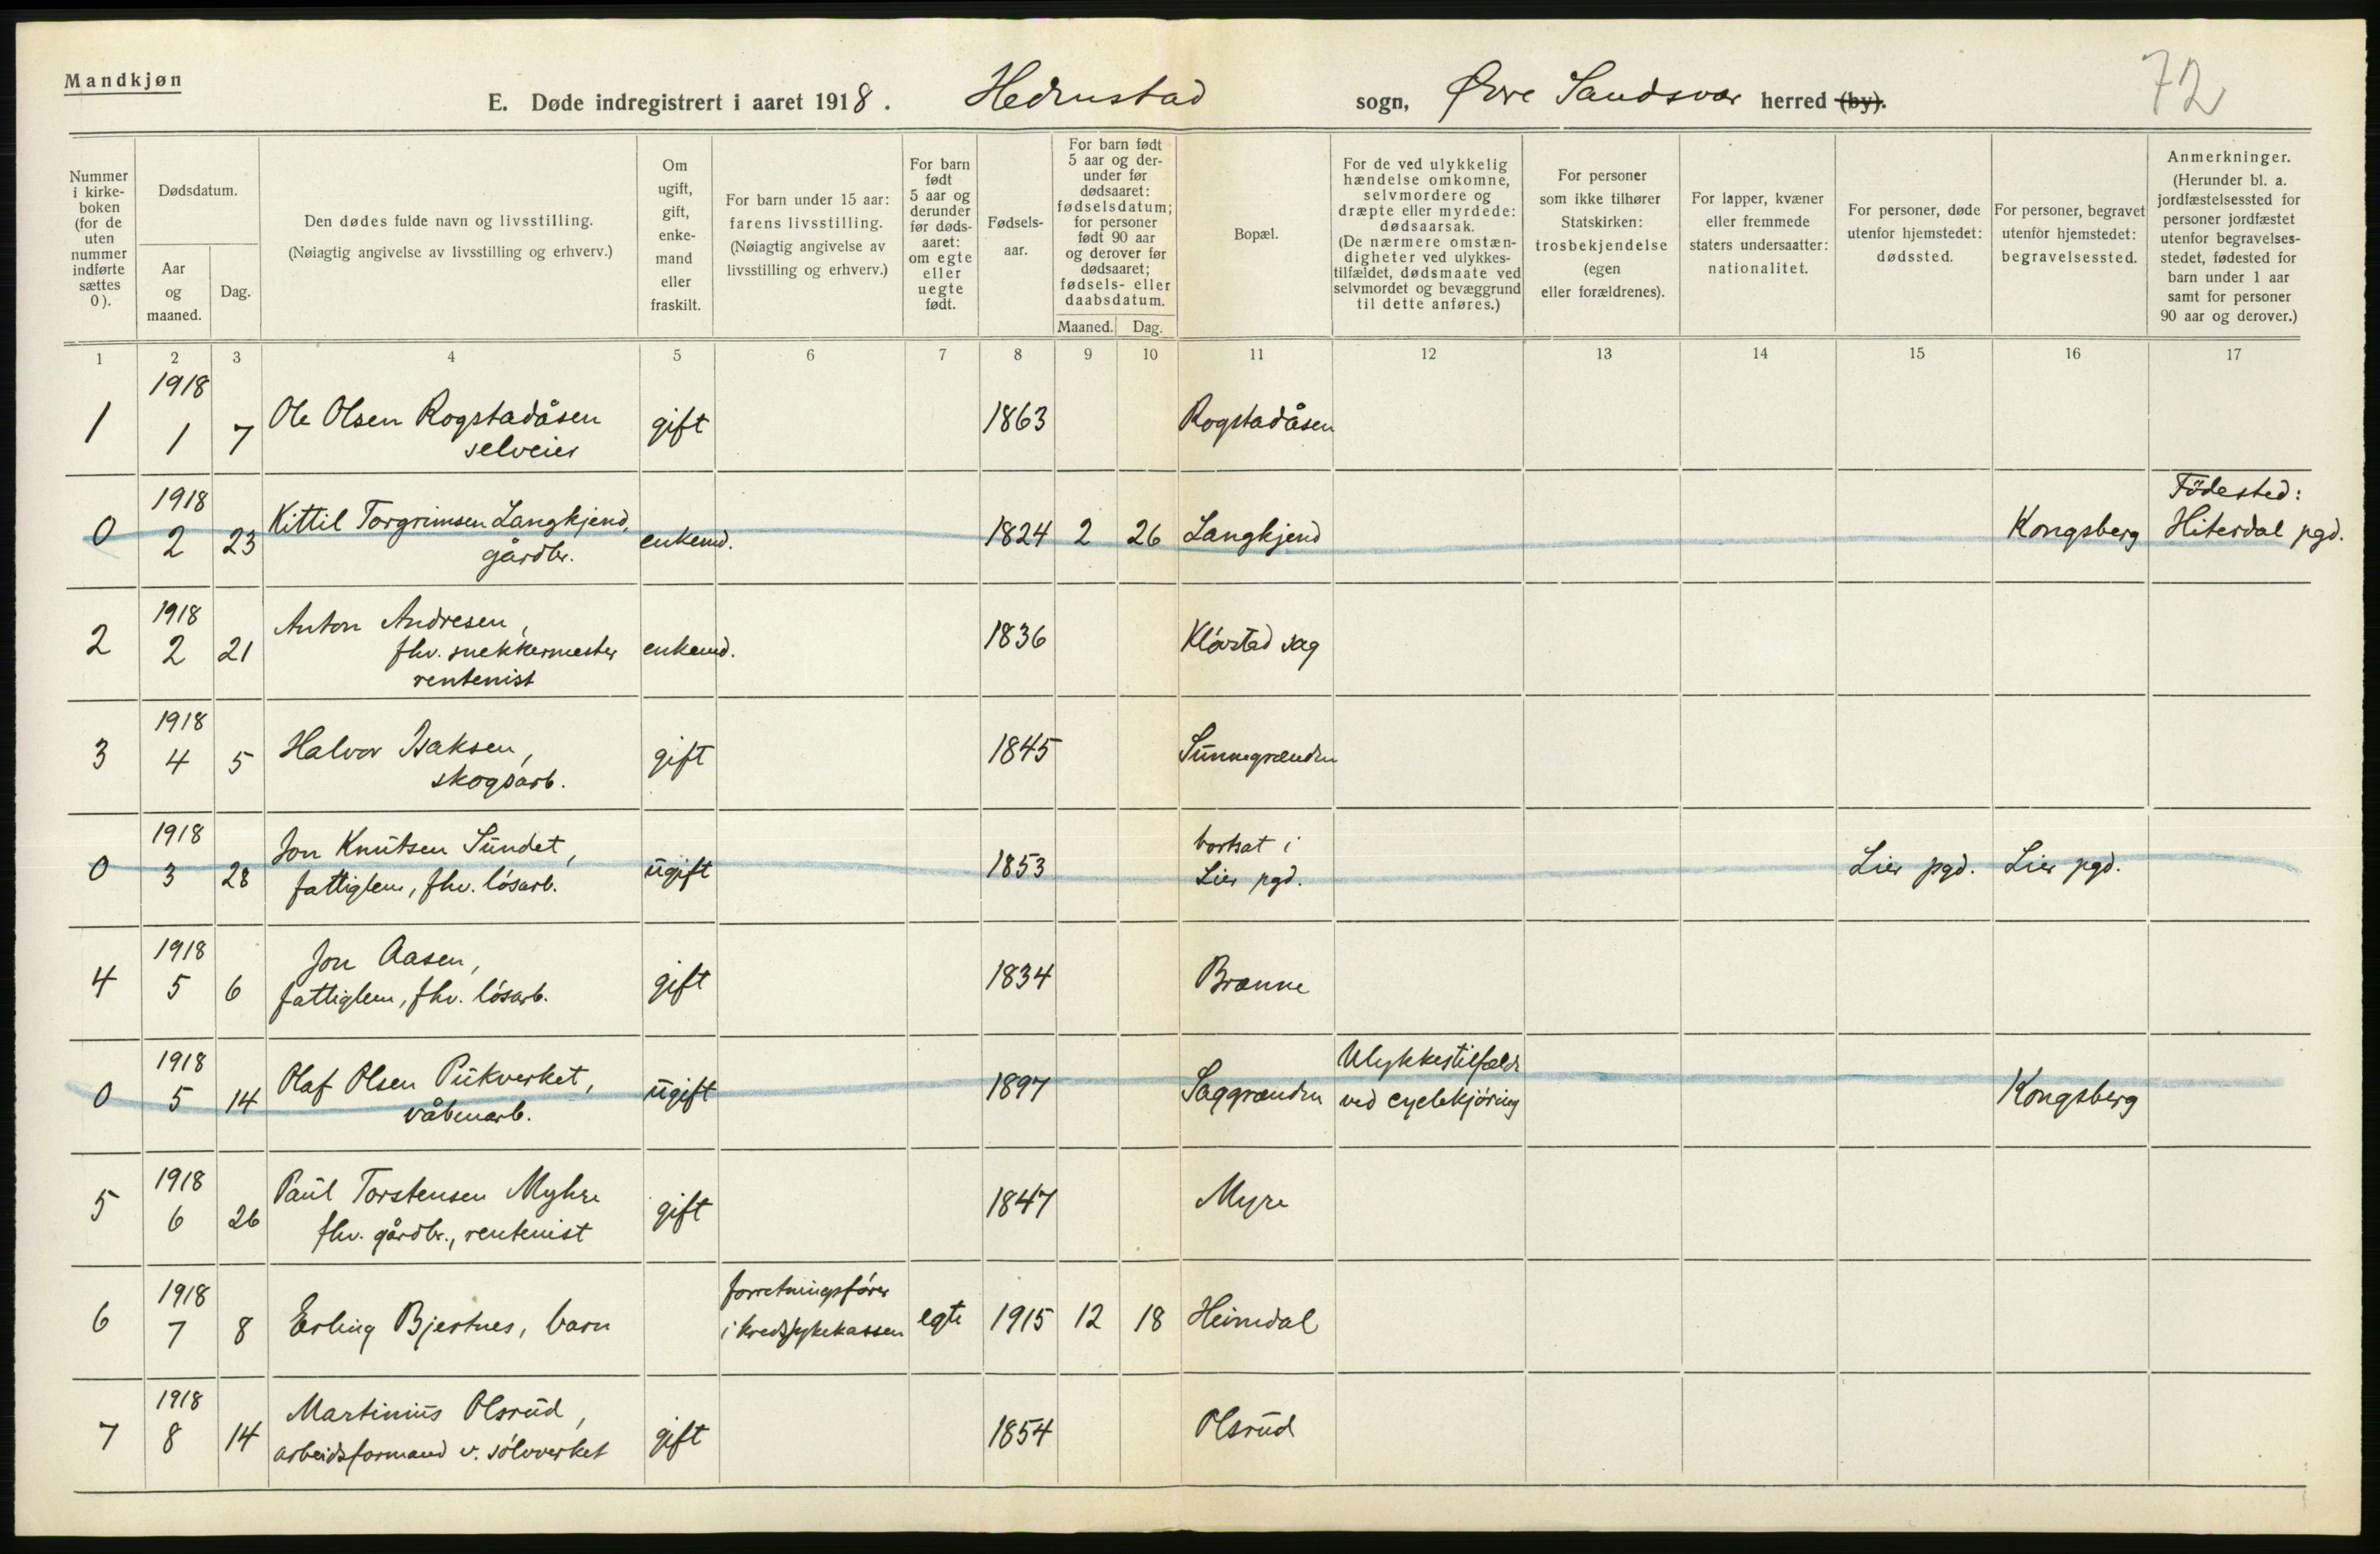 Mandkjøn
E. Døde indregistrert i aaret 1918. Hedenstad sogn, Øvre Sandsvær herred (by).
72
Nummer i kirke- boken (for de uten nummer indførte sættes 0).
Dødsdatum.
Aar og maaned.
Dag.
Den dødes fulde navn og livsstilling.
(Nøiagtig angivelse av livsstilling og erhverv.)
Om ugift, gift, enke- mand eller fraskilt.
For barn under 15 aar: farens livsstilling. (Nøiagtig angivelse av livsstilling og erhverv.)
For barn født 5 aar og derunder før døds- aaret: om egte eller uegte født.
Fødsels- aar.
For barn født 5 aar og der- under før dødsaaret: fødselsdatum; for personer født 90 aar og derover før dødsaaret; fødsels- eller daabsdatum.
Maaned. Dag.
Bopæl.
For de ved ulykkelig hændelse omkomne, selvmordere og dræpte eller myrdede: dødsaarsak. (De nærmere omstæn- digheter ved ulykkes- tilfældet, dødsmaate ved selvmordet og bevæggrund til dette anføres.)
For personer som ikke tilhører Statskirken: trosbekjendelse (egen eller forældrenes).
For lapper, kvæner eller fremmede staters undersaatter: nationalitet.
For personer, døde utenfor hjemstedet: dødssted.
For personer, begravet utenfor hjemstedet: begravelsessted.
Anmerkninger. (Herunder bl. a. jordfæstelsessted for personer jordfæstet utenfor begravelses- stedet, fødested for barn under 1 aar samt for personer 90 aar og derover.)
1 2 3 4 5 6 7 8 9 10 11 12 13 14 15 16 17
1918
1 1 7 Ole Olsen Rogstadåsen gift 1863 Rogstadåsen
selveier
1918 Födested:
0 2 23 Kittil Torgrimsen Langkjend, enkemd. 1824 2 26 Langkjend Kongsberg Hiterdal pgd.
gårdbr.
1918
2 2 21 Anton Andresen, enkemd. 1836 Klovstad sag
fhv. snekkermester
rentenist
1918
3 4 5 Halvor Isaksen, gift 1845 Sunnegrænden
skogsarb.
1918 bortsat i
0 3 28 Jon Knutsen Sundet, ugift 1853 Lier pgd. Lier pgd. Lier pgd.
fattiglem, fhv. løsarb.
1918
4 5 6 Jon Aasen, gift 1834 Brænne
fattiglem, fhv. løsarb.
1918 Ulykkestilfælde
0 5 14 Olaf Olsen Pukverket, ugift 1897 Saggrænden ved cyclekjøring Kongsberg
våbenarb.
1918
5 6 26 Paul Torstensen Myhre gift 1847 Myre
fhv. gårdbr., rentenist
1918 forretningsfører
6 7 8 Erling Bjertnes, barn i kredssykekassen egte 1915 12 18 Heimdal
1918
7 8 14 Martinius Olsrud, gift 1854 Olsrud
arbeidsformand v. sølvverket